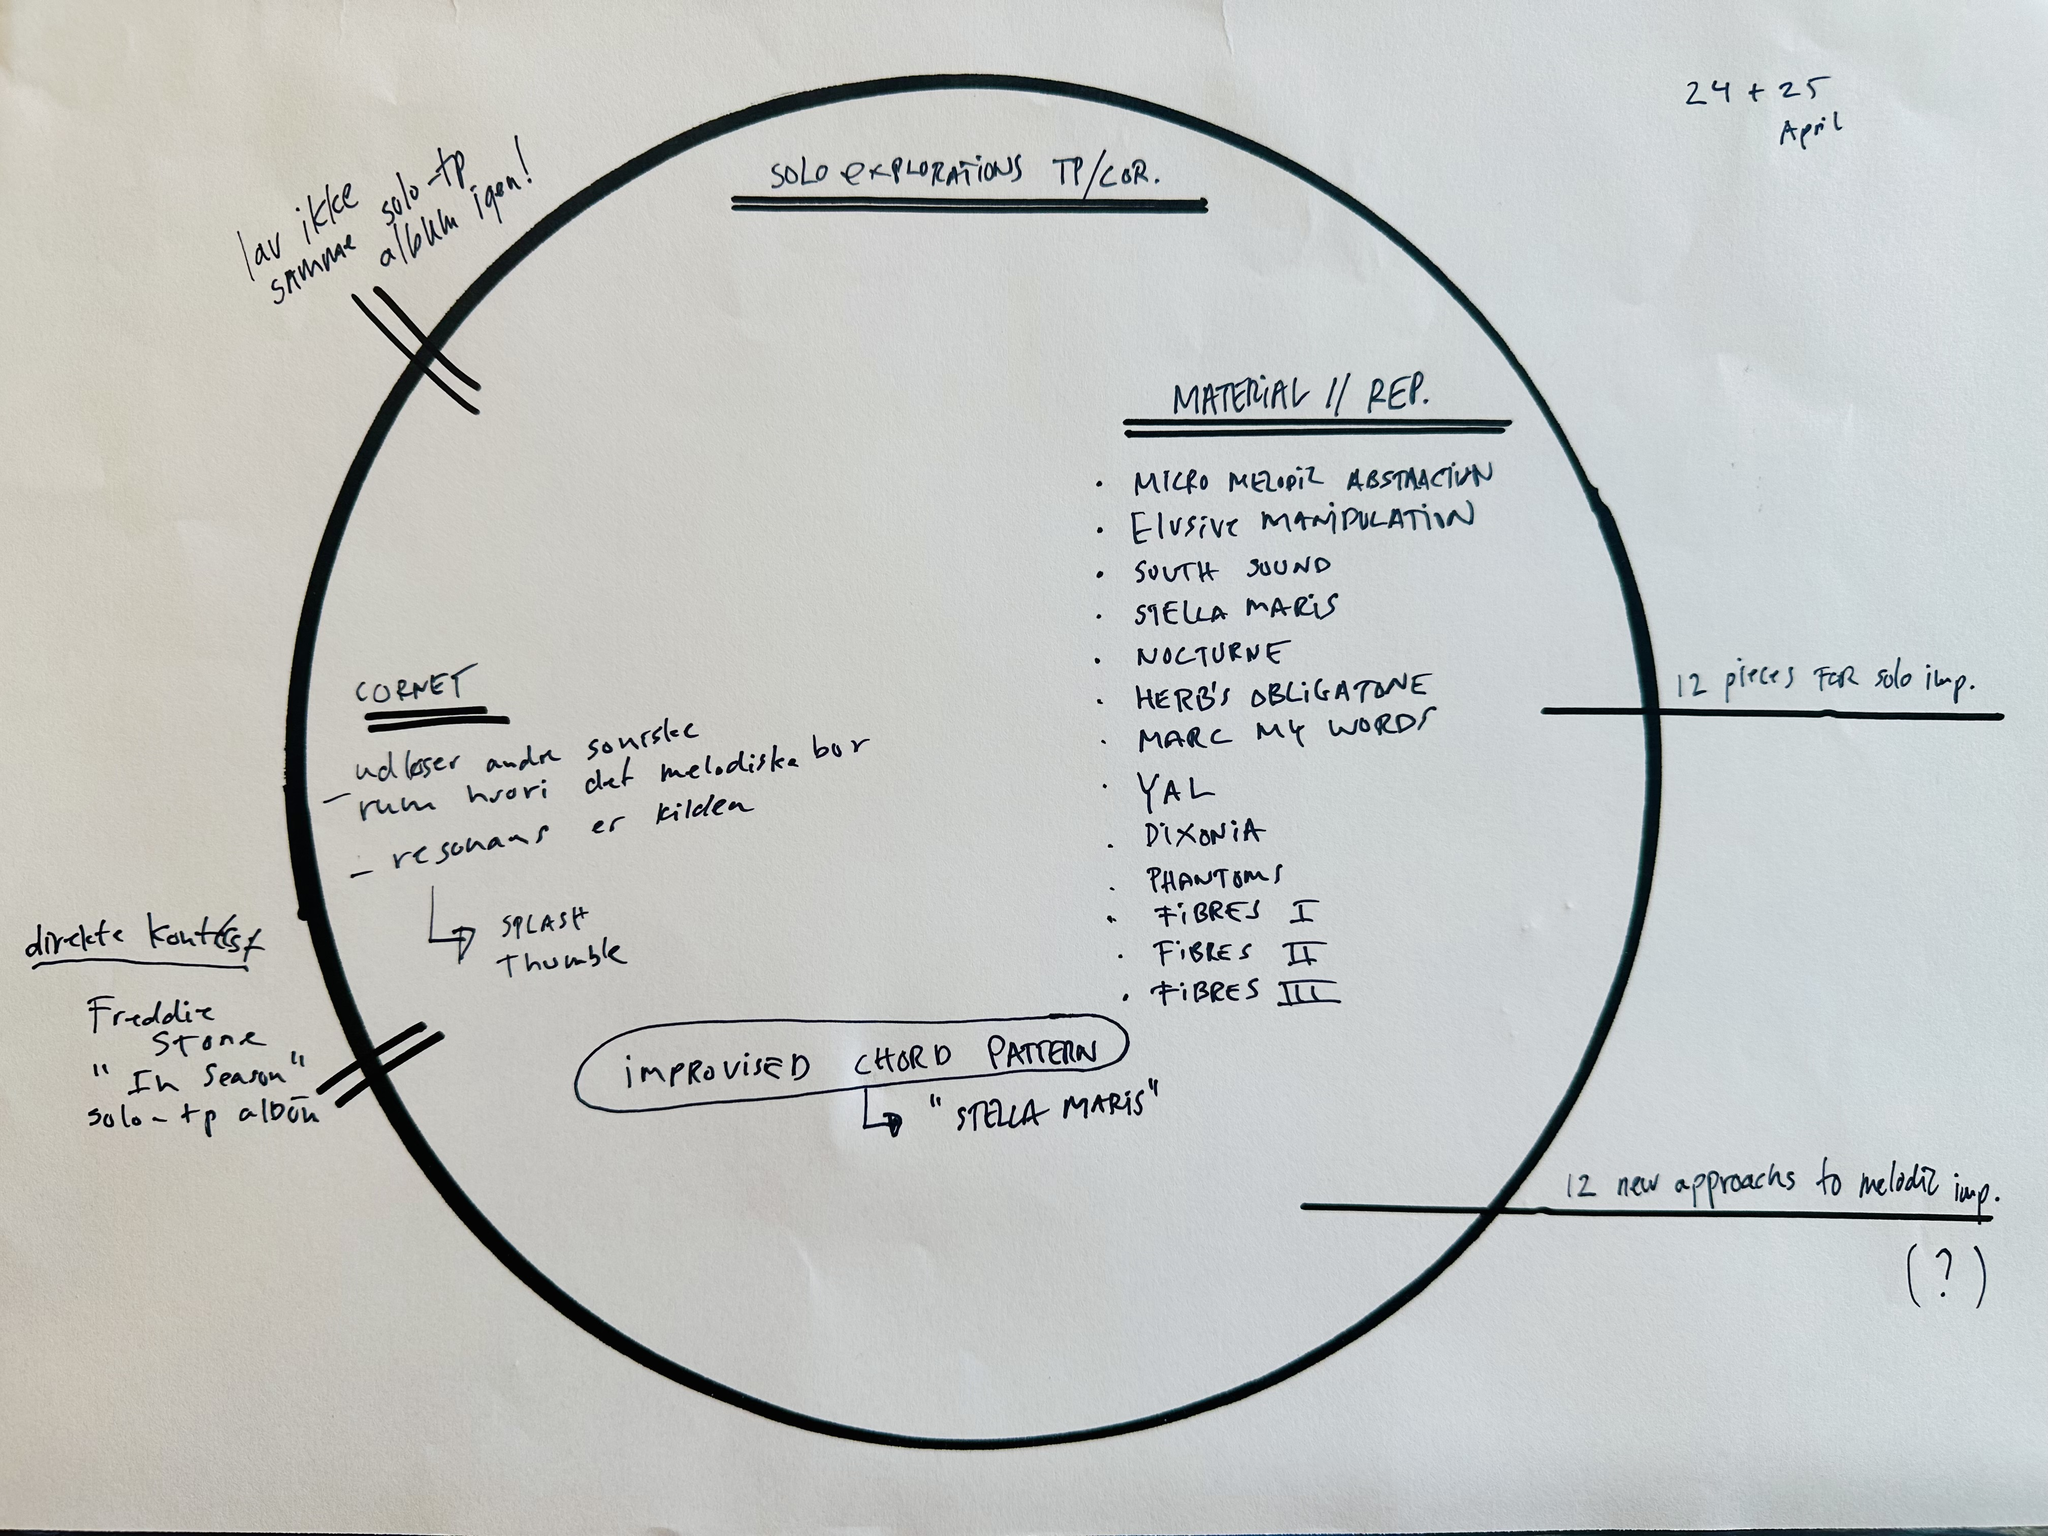 24 + 25
April
SOLO EXPLORATIONS TP/COR.
lav ikke
samme solo-tp
album igen!
MATERIAL // REP.
· MICRO MELODIC ABSTRACTION
· ELUSIVE MANIPULATION
· SOUTH SOUND
· STELLA MARIS
· NOCTURNE
· HERB'S OBLIGATONE
· MARC MY WORDS
· YAL
· DIXONIA
· PHANTOMS
· FIBRES I
· FIBRES II
· FIBRES III
12 pieces FOR solo imp.
CORNET
- udløser andre soniske
rum hvori det melodiske bor
- resonans er kilden
SPLASH
Thumble
direkte kontekst
Freddie
Stone
"In Season"
solo-tp album
IMPROVISED CHORD PATTERN
"STELLA MARIS"
12 new approachs to melodic imp.
(?)